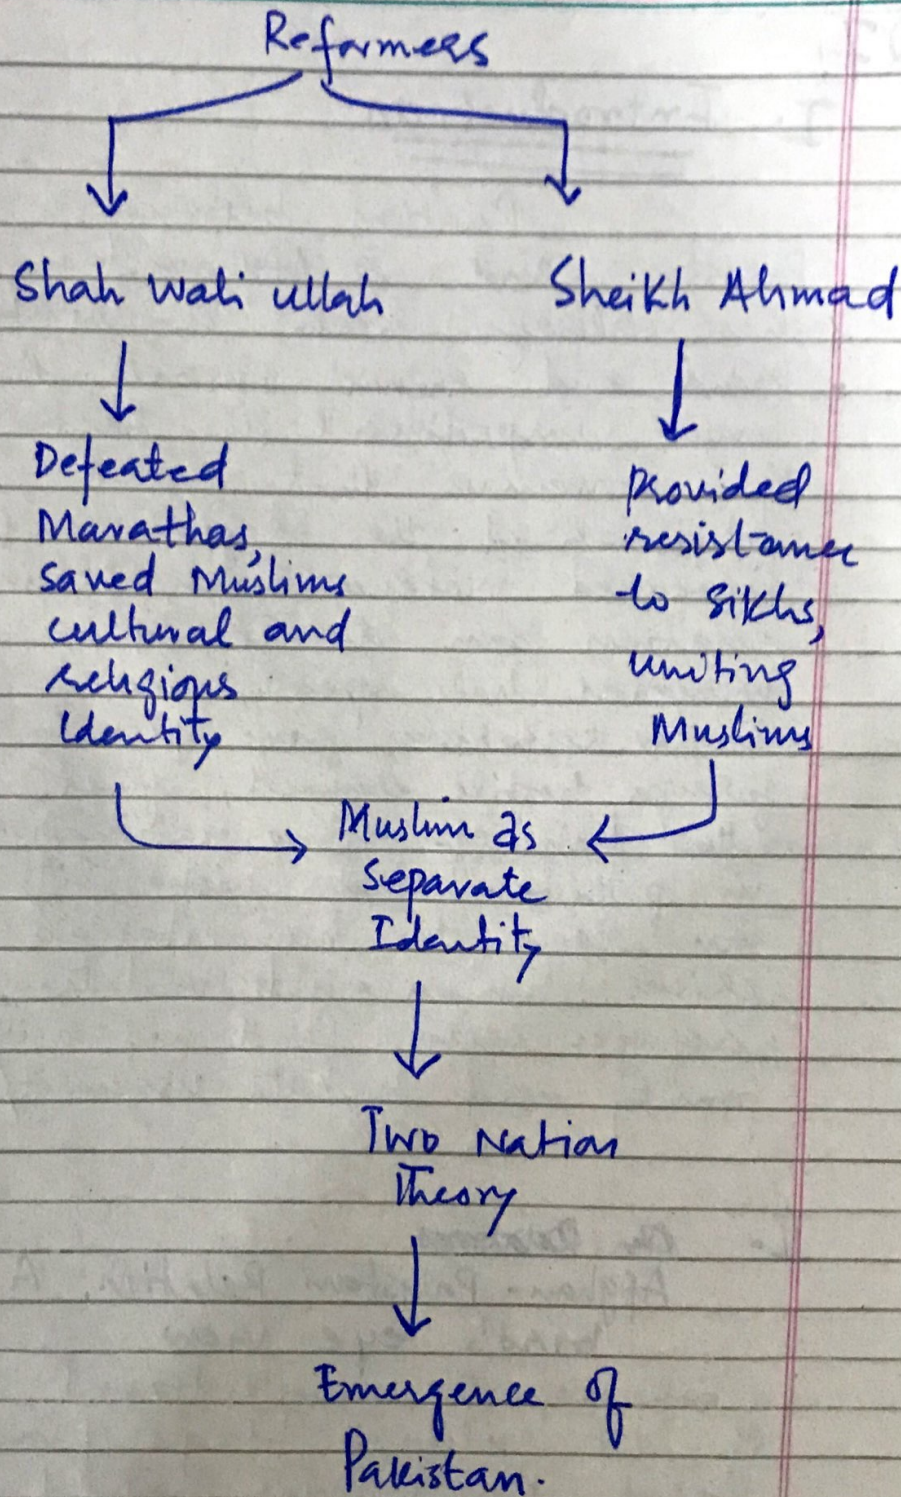 Reformers
Shah Wali ullah
Sheikh Ahmad
Defeated
Marathas,
saved Muslims
cultural and
religious
Identity
Provided
resistance
to Sikhs,
uniting
Muslims
Muslim as
Separate
Identity
Two Nation
Theory
Emergence of
Pakistan.